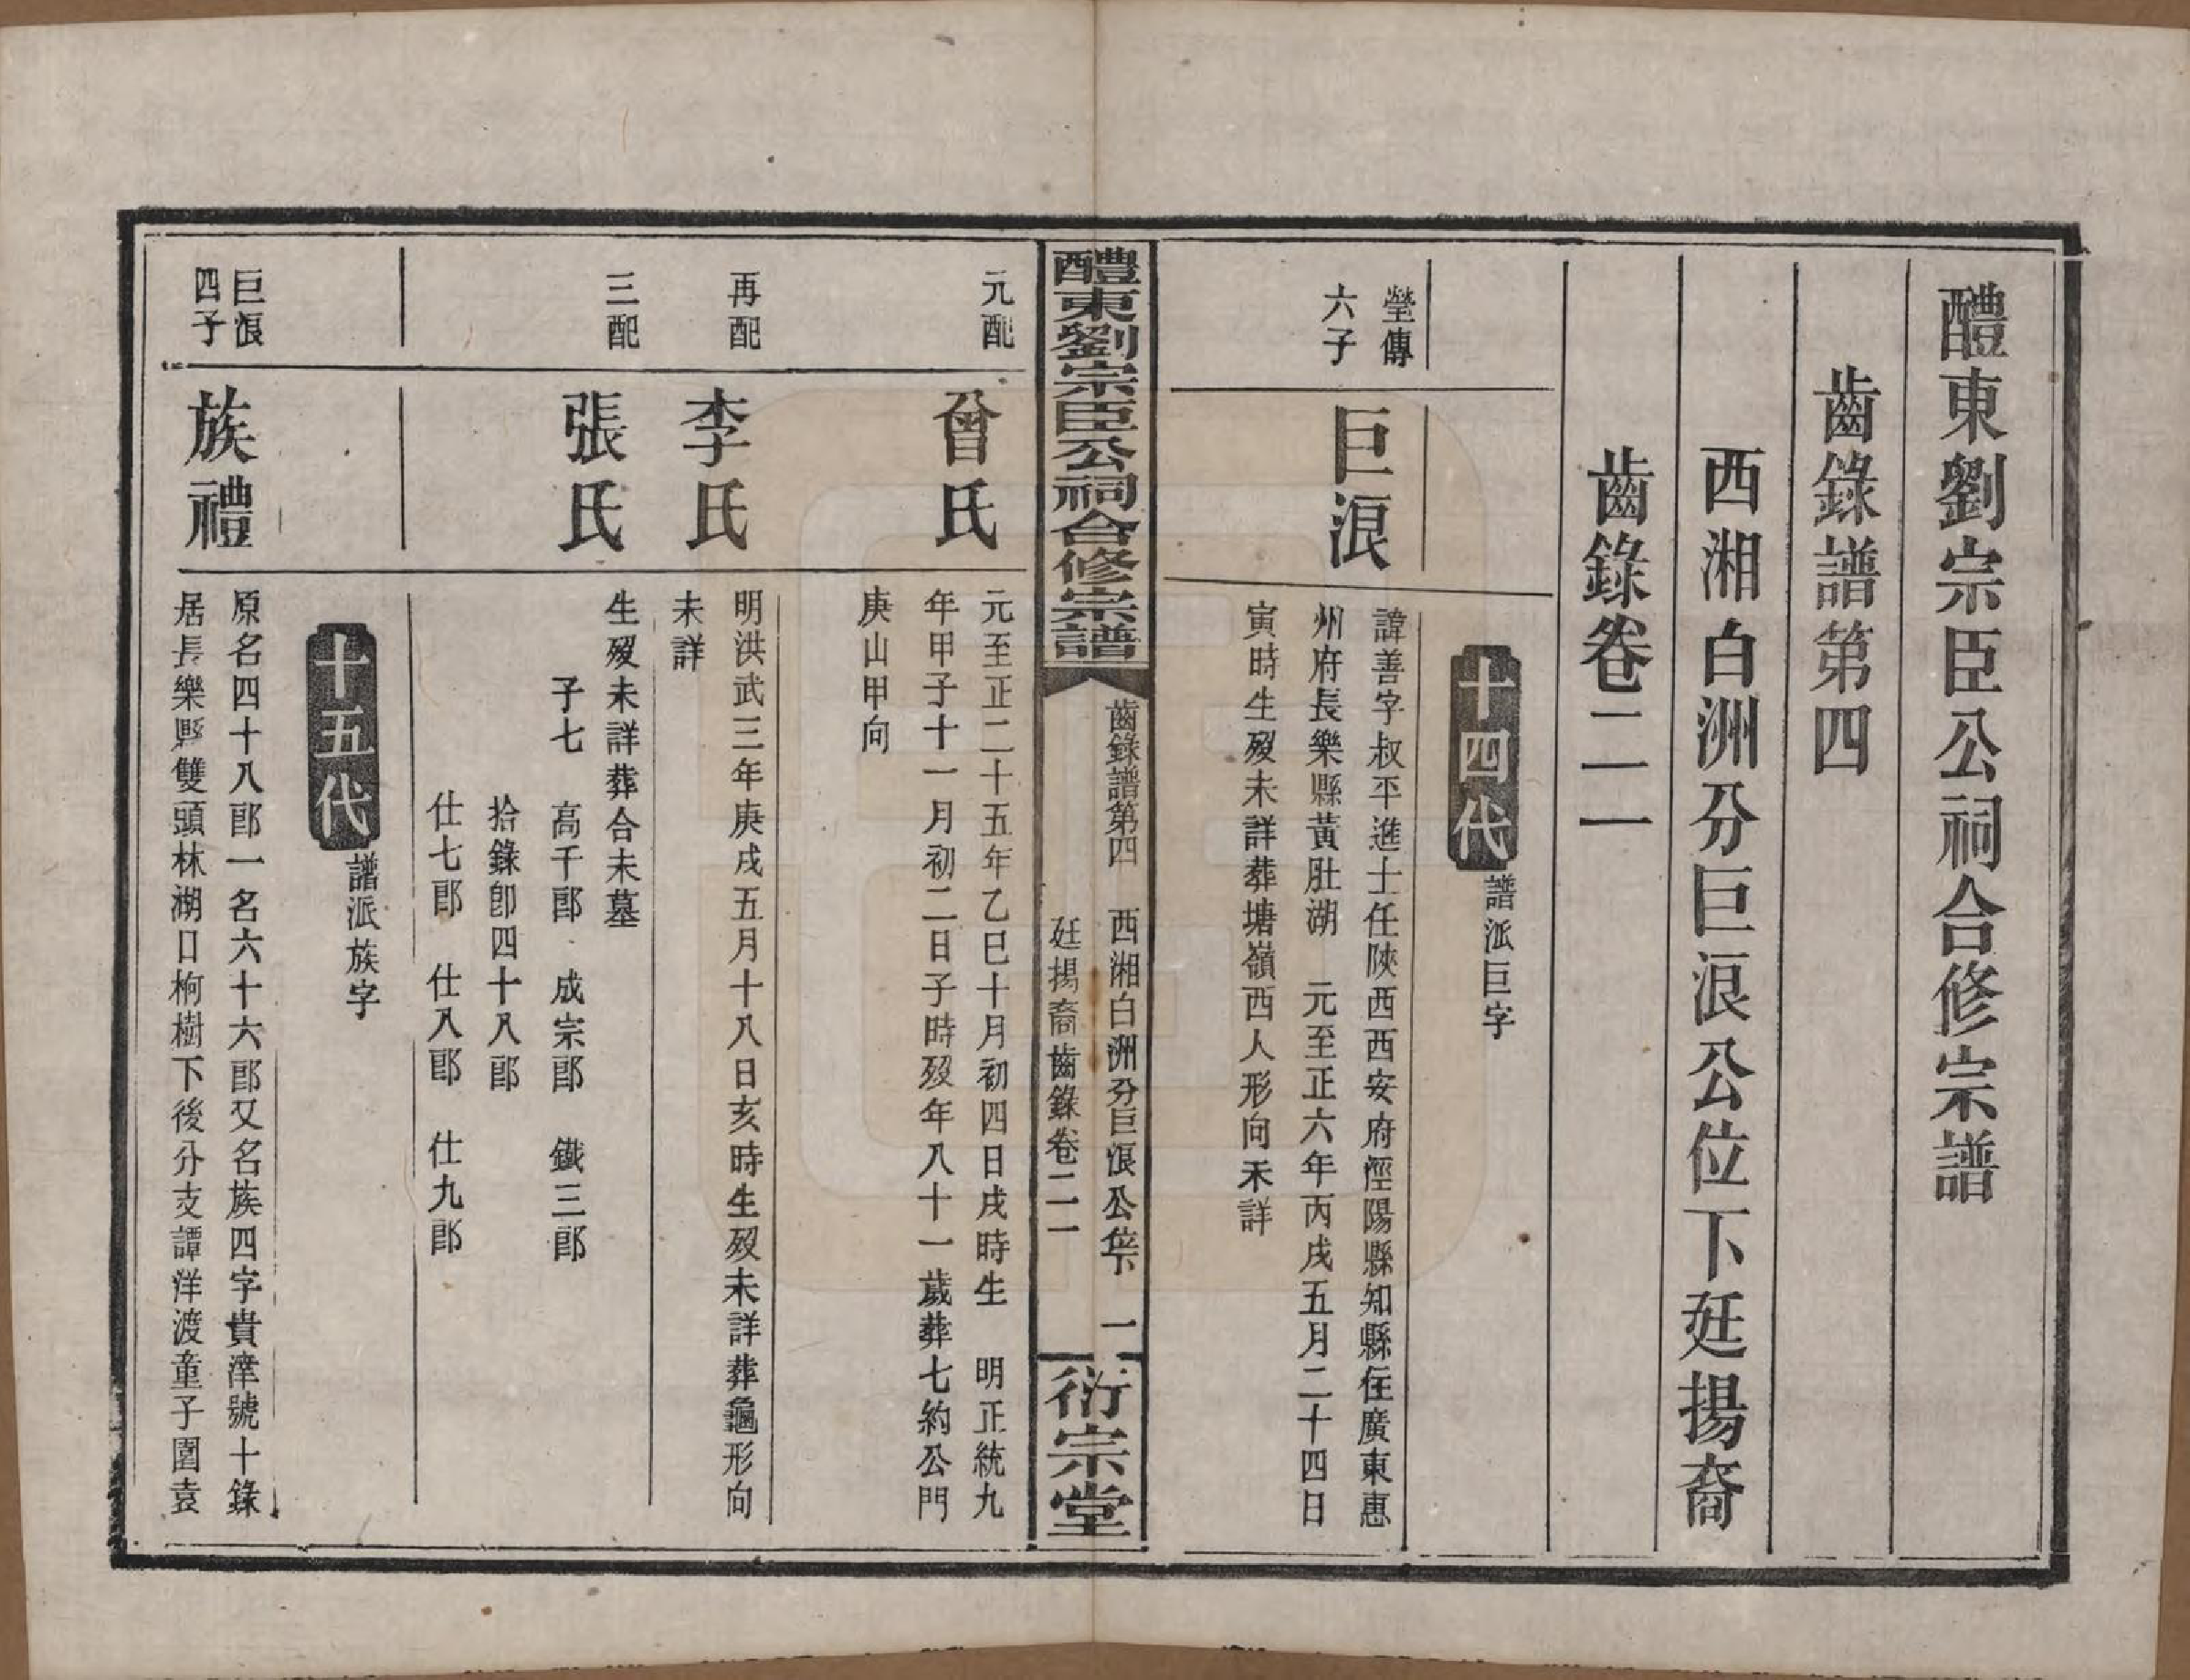 醴東劉宗臣公祠合修宗譜
齒錄譜第四
西湘白洲分巨浪公位下廷揚裔
齒錄卷二一
十四代
譜派巨字
瑩傳
六子
巨浪
諱善字叔平進士任陝西西安府涇陽縣知縣住廣東惠
州府長樂縣黃肚湖　元至正六年丙戌五月二十四日
寅時生歿未詳葬塘嶺西人形向未詳
醴東劉宗臣公祠合修宗譜
齒錄譜第四　西湘白洲分巨浪公位下　一
廷揚裔齒錄卷二一
衍宗堂
元配
曾氏
元至正二十五年乙巳十月初四日戌時生　明正統九
年甲子十一月初二日子時歿年八十一歲葬七約公門
庚山甲向
再配
李氏
明洪武三年庚戌五月十八日亥時生歿未詳葬龜形向
未詳
三配
張氏
生歿未詳葬合未墓
子七　高千郎　成宗郎　鐵三郎
拾錄卽四十八郎
仕七郎　仕八郎　仕九郎
十五代
譜派族字
巨浪
四子
族禮
原名四十八郎一名六十六郎又名族四字貴津號十錄
居長樂縣雙頭林湖口桐樹下後分支譚洋渡童子圍袁